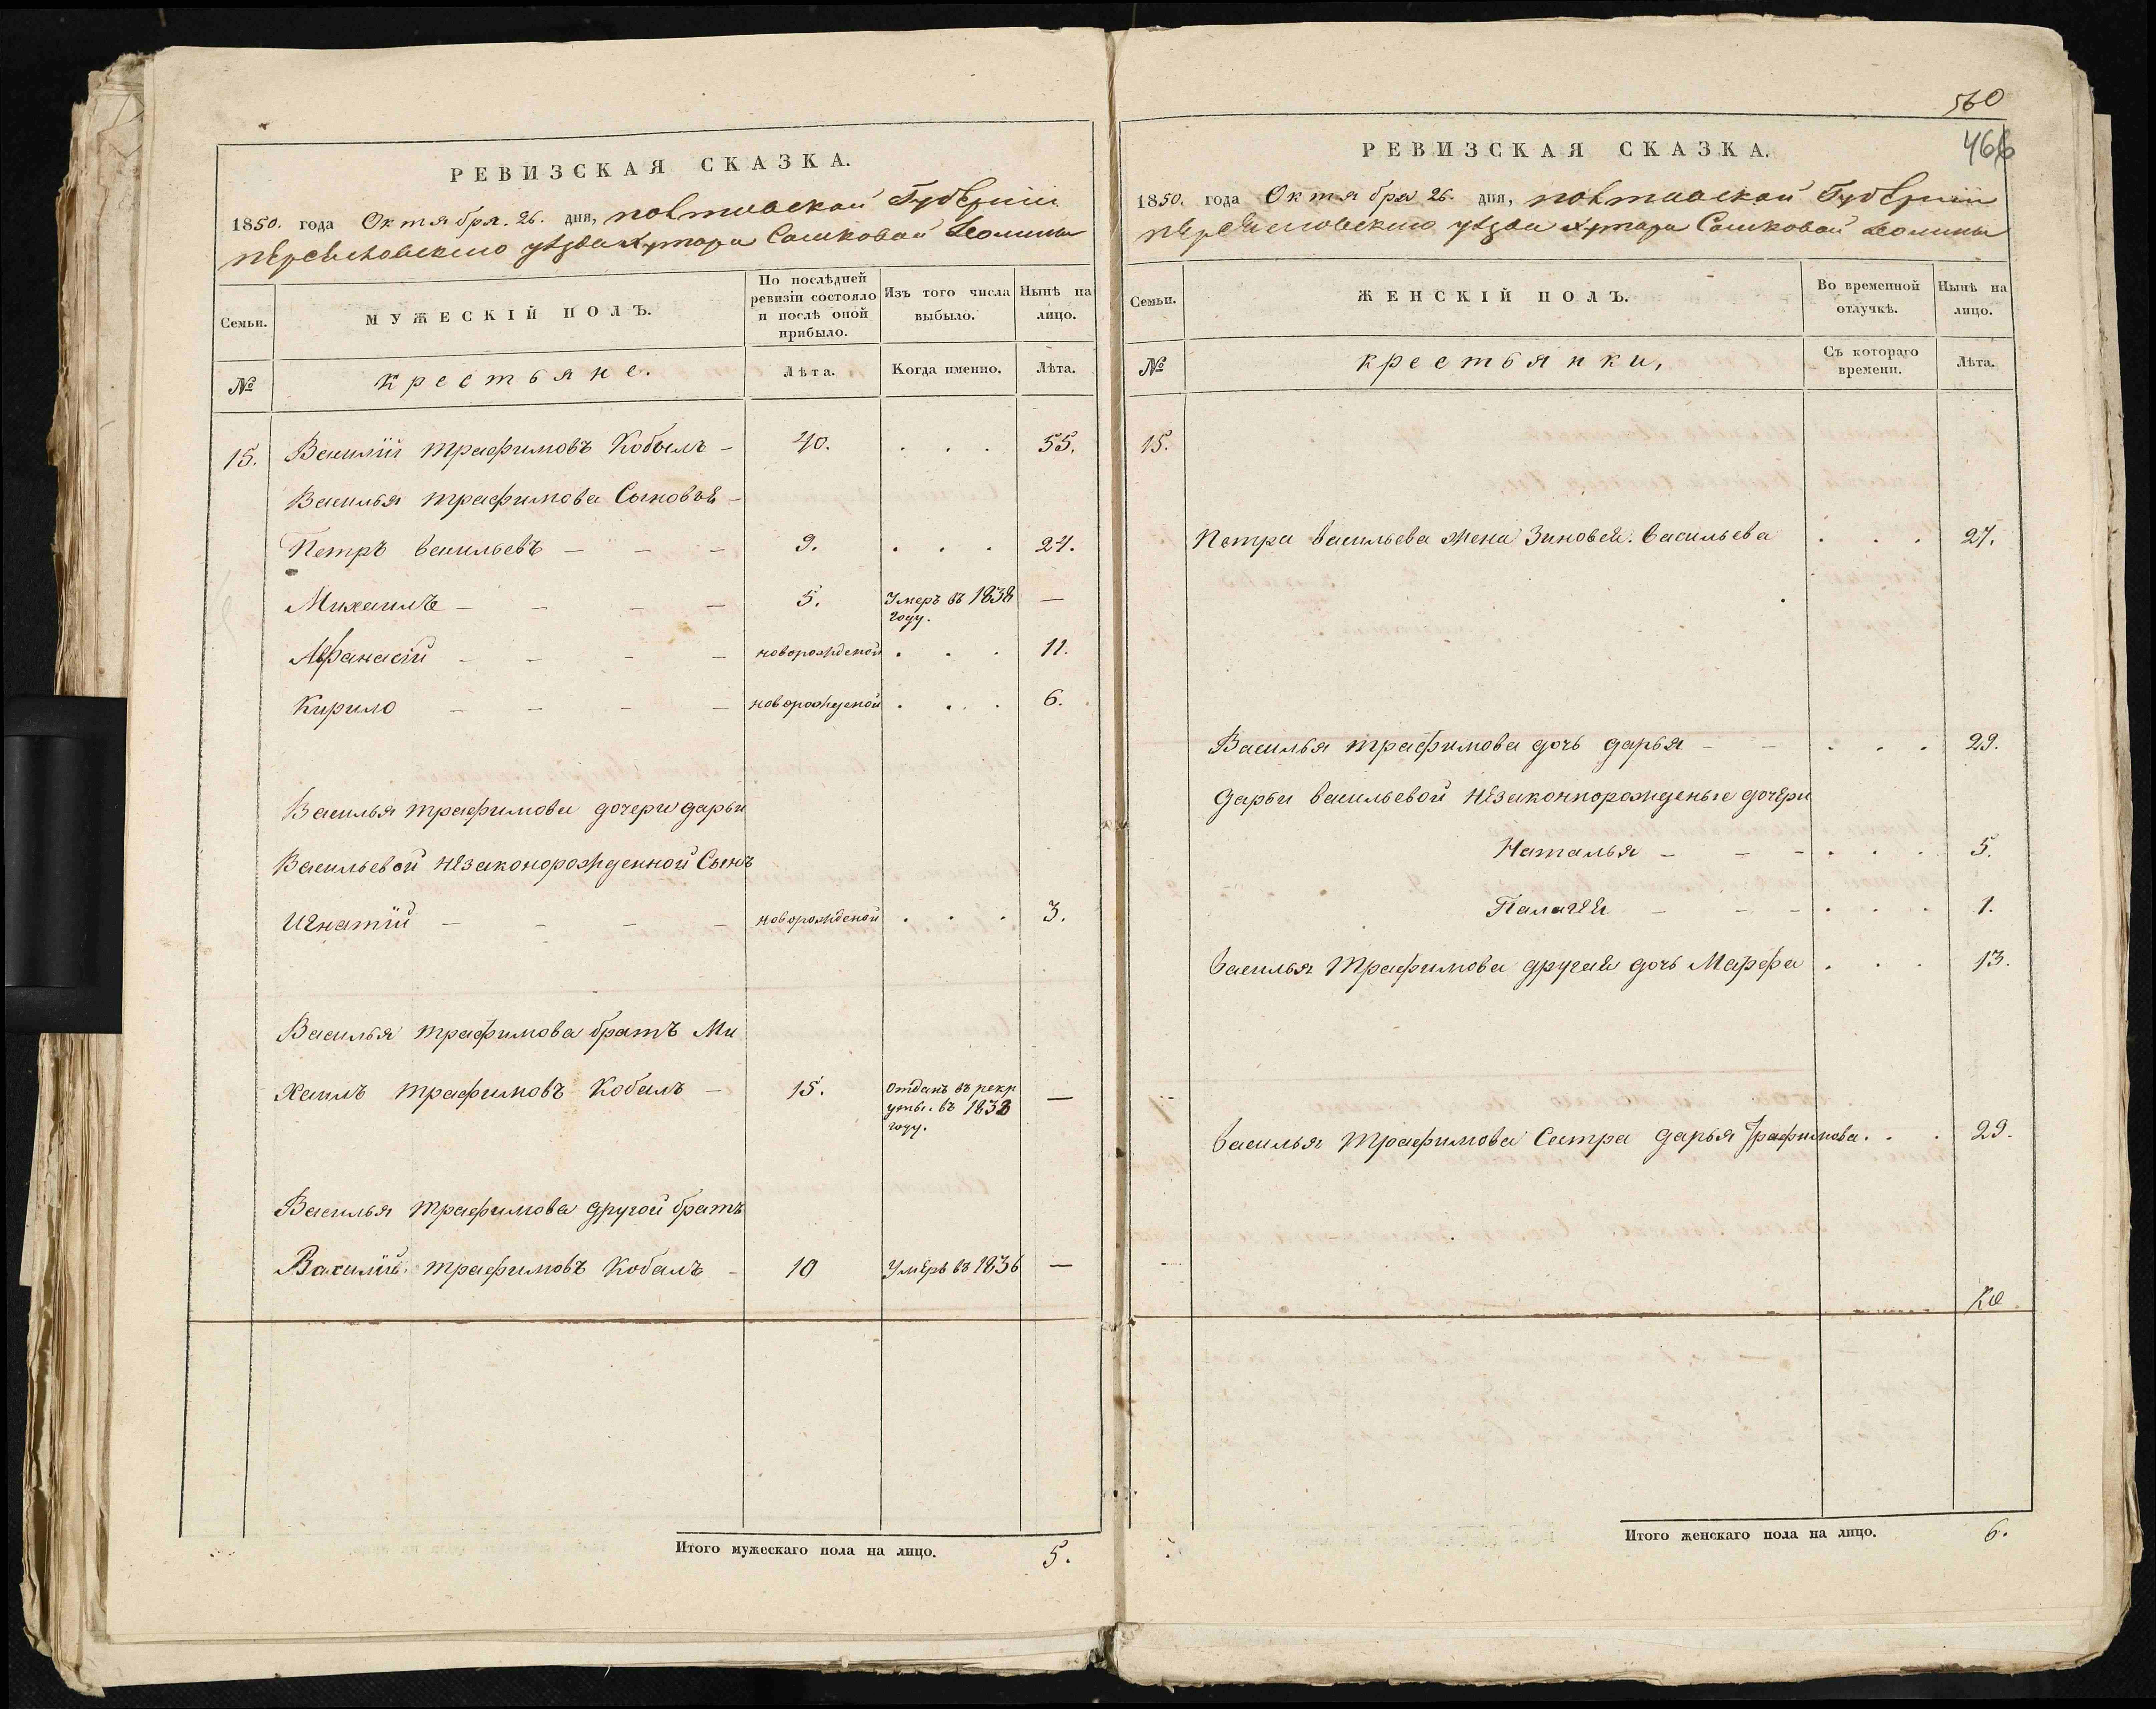 РЕВИЗСКАЯ СКАЗКА.
1850. года Октября. 26. дня, полтавской Губерніи
переясловскаго уѣзда хутора Сошковой Долины
Семьи.
МУЖЕСКІЙ ПОЛЪ.
По послѣдней ревизіи состояло и послѣ оной прибыло.
Изъ того числа выбыло.
Нынѣ на лицо.
№
крестьяне.
Лѣта.
Когда именно.
Лѣта.
15. Василій трафимовъ Кобылъ — 40. . . . 55.
Василья трафимова Сыновья —
Петръ васильевъ — — — 9. . . . 24.
Михаилъ — — — — 5. Умеръ въ 1838 году. —
Афанасій — — — — новорожденой . . . 11.
Кирило — — — — новорожденой . . . 6.
Василья трафимова дочери дарьи
Васильевой незаконорожденной Сынъ
Игнатій — — — — новорожденой . . . 3.
Василья трафимова братъ Ми
хаилъ трафимовъ Кобалъ — 15. Отданъ въ рекр
уты. въ 1838
году. —
Василья трафимова другой братъ
Василій. трафимовъ Кобалъ — 10 Умеръ въ 1836 —
Итого мужескаго пола на лицо. 5.
560
466
РЕВИЗСКАЯ СКАЗКА.
1850. года Октября 26. дня, полтавской Губерніи
переясловскаго уѣзда хутора Сошковой долины
Семьи.
ЖЕНСКІЙ ПОЛЪ.
Во временной отлучкѣ.
Нынѣ на лицо.
№
крестьянки,
Съ котораго времени.
Лѣта.
15.
Петра васильева жена Зиновея. васильева . . . 27.
Василья трафимова дочь дарья — — . . . 29.
дарьи васильевой незаконнорожденые дочери
Наталья — — — . . . 5.
Палагея — — — . . . 1.
василья трафимова другая дочь Марфа . . . 13.
василья трафимова Сестра дарья Трафимова. . . 29.
Итого женскаго пола на лицо. 6.